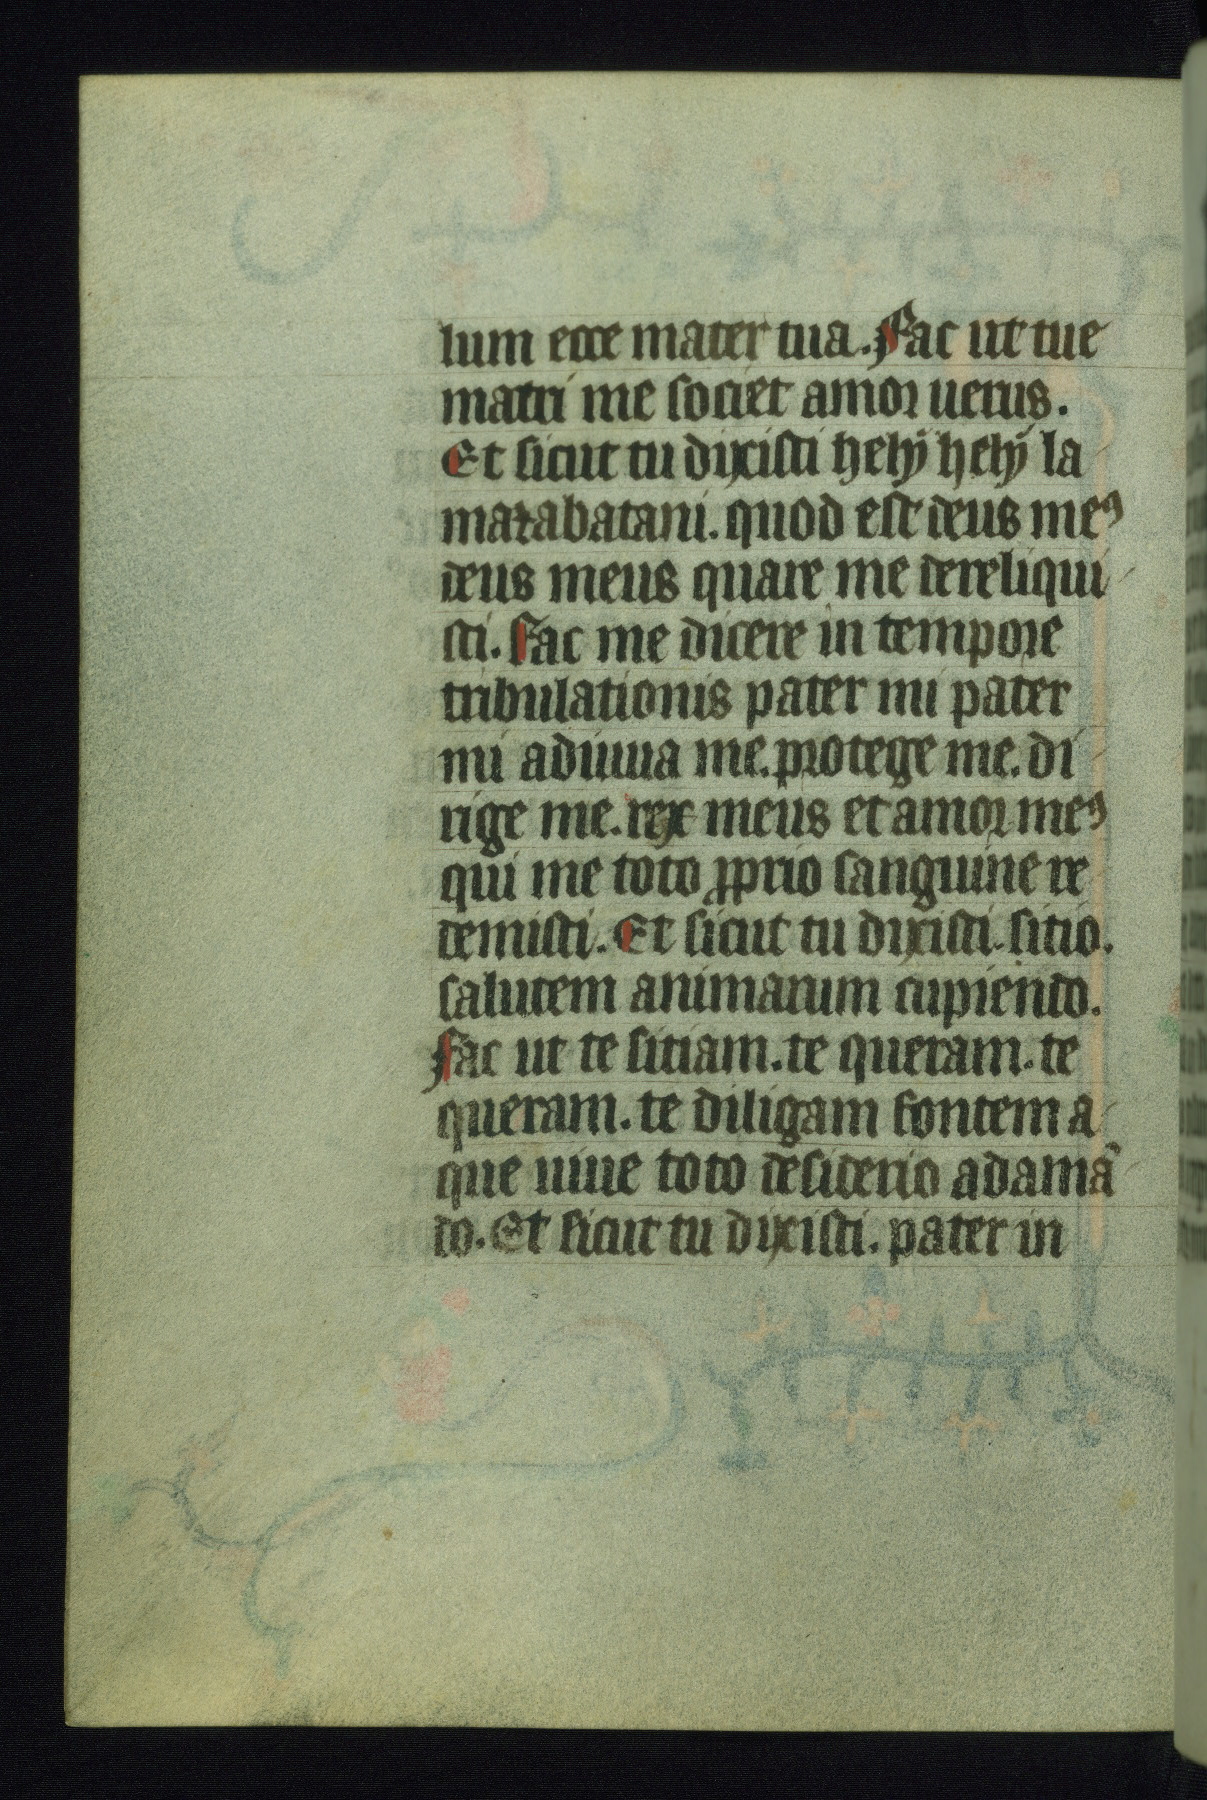 lum ecce mater tua. Fac ut tue
matri me societ amor uerus.
Et sicut tu dixisti hely hely la
mazabatani. quod est deus meꝰ
deus meus quare me derelıqui
sti. Fac me dicere in tempore
tribulationis pater mi pater
mi adiuua me. protege me. di
rige me. rex meus et amor meꝰ
qui me toto ꝓprio sanguine re
demisti. Et sicut tu dixisti. sitio.
salutem animarum cupiendo.
Fac ut te sitiam. te queram. te
queram. te diligam fontem a
que uiue toto desiderio adamā
do. Et sicut tu dixisti. pater in